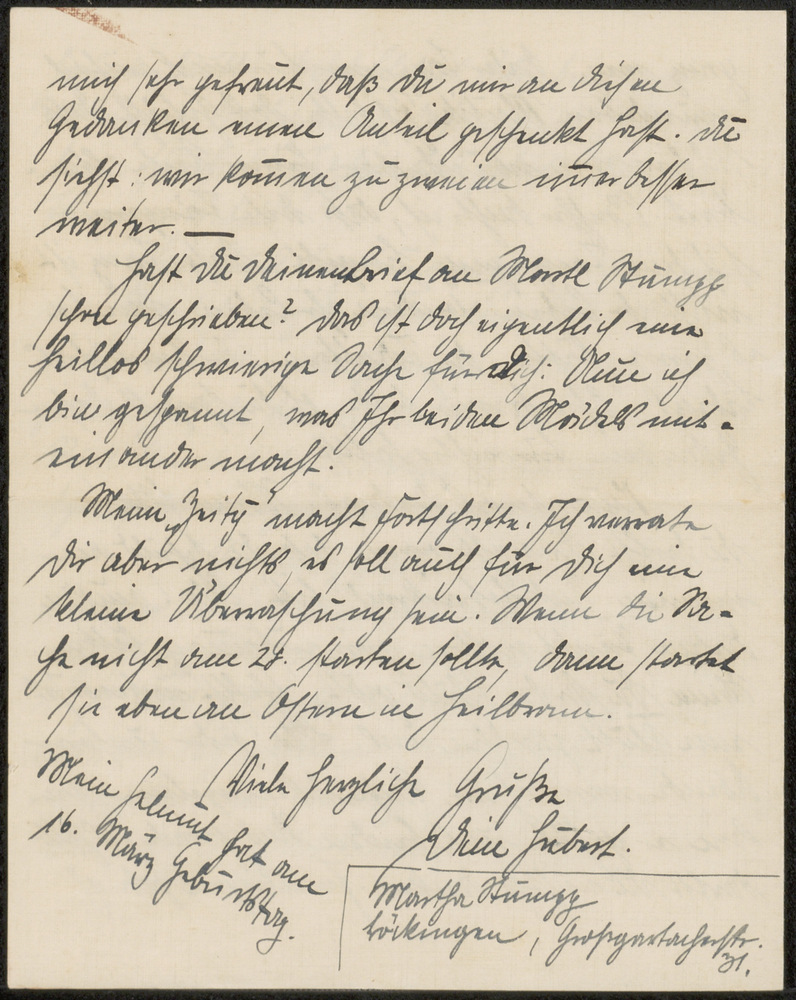 mich sehr gefreut, daß Du mir an diesen
Gedanken einen Anteil geschenkt hast. Du
siehst: wir kom̄en zu zweien im̄er besser
weiter. —
Hast Du Deinen Brief an Martl Stumpp
schon geschrieben? Das ist doch eigentlich eine
heillos schwierige Sache für Dich. Nun ich
bin gespannt, was Ihr beiden Mädels mit-
einander macht.
Meine „Zeitg“ macht Fortschritte. Ich verrate
Dir aber nichts, es soll auch für Dich eine
kleine Überraschung sein. Wenn die Sa-
che nicht am 28. starten sollte, dann startet
sie eben an Ostern in Heilbronn.
Viele herzliche Grüße
Dein Hubert.
Mein Helmut hat am
16. März Geburtstag.
Martha Stumpp
Böckingen, Großgartacherstr.
31.